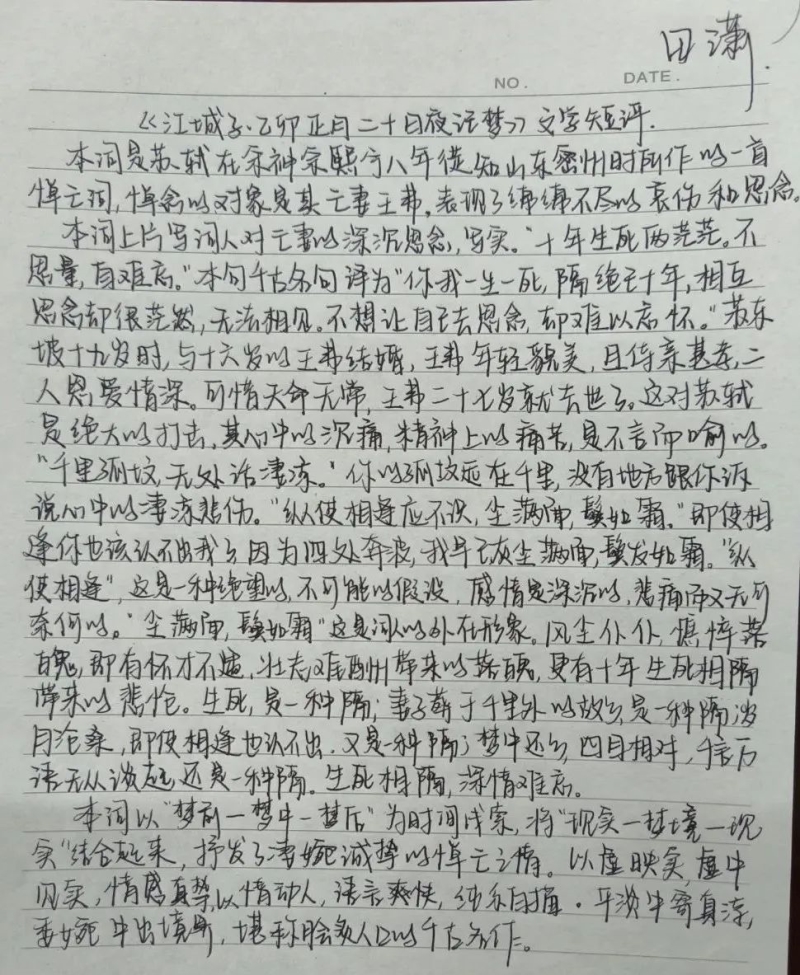 田潇
NO.
DATE.
《江城子·乙卯正月二十日夜记梦》文学短评.
本词是苏轼在宋神宗熙宁八年徙知山东密州时所作的一首
悼亡词,悼念的对象是其亡妻王弗,表现了绵绵不尽的哀伤和思念。
本词上片写词人对亡妻的深沉思念,写实。"十年生死两茫茫。不
思量,自难忘。"本句千古名句译为"你我一生一死,隔绝已十年,相互
思念却很茫然,无法相见。不想让自己去思念,却难以忘怀。"苏东
坡十九岁时,与十六岁的王弗结婚,王弗年轻貌美,且侍亲甚孝,二
人恩爱情深。可惜天命无常,王弗二十七岁就去世了。这对苏轼
是绝大的打击,其心中的沉痛,精神上的痛苦,是不言而喻的。
"千里孤坟,无处话凄凉。"你的孤坟远在千里,没有地方跟你诉
说心中的凄凉悲伤。"纵使相逢应不识,尘满面,鬓如霜。"即使相
逢你也该认不出我了因为四处奔波,我早已灰尘满面,鬓发如霜。"纵
使相逢",这是一种绝望的,不可能的假设,感情是深沉的,悲痛而又无可
奈何的。"尘满面,鬓如霜"这是词人的外在形象。风尘仆仆,憔悴落
魄,即有怀才不遇,壮志难酬州带来的落魄,更有十年生死相隔
带来的悲怆。生死,是一种隔;妻子葬于千里外的故乡是一种隔岁
月沧桑,即使相逢也认不出,又是一种隔;梦中还乡,四目相对,千言万
语无从谈起还是一种隔。生死相隔,深情难忘。
本词以"梦前—梦中—梦后"为时间线索,将"现实—梦境—现
实"结合起来,抒发了凄婉诚挚的悼亡之情。以虚映实,虚中
见实,情感真挚,以情动人,语言爽快,纯系白描。平淡中寄真淳,
委婉中出境界,堪称脍炙人口的千古名作。